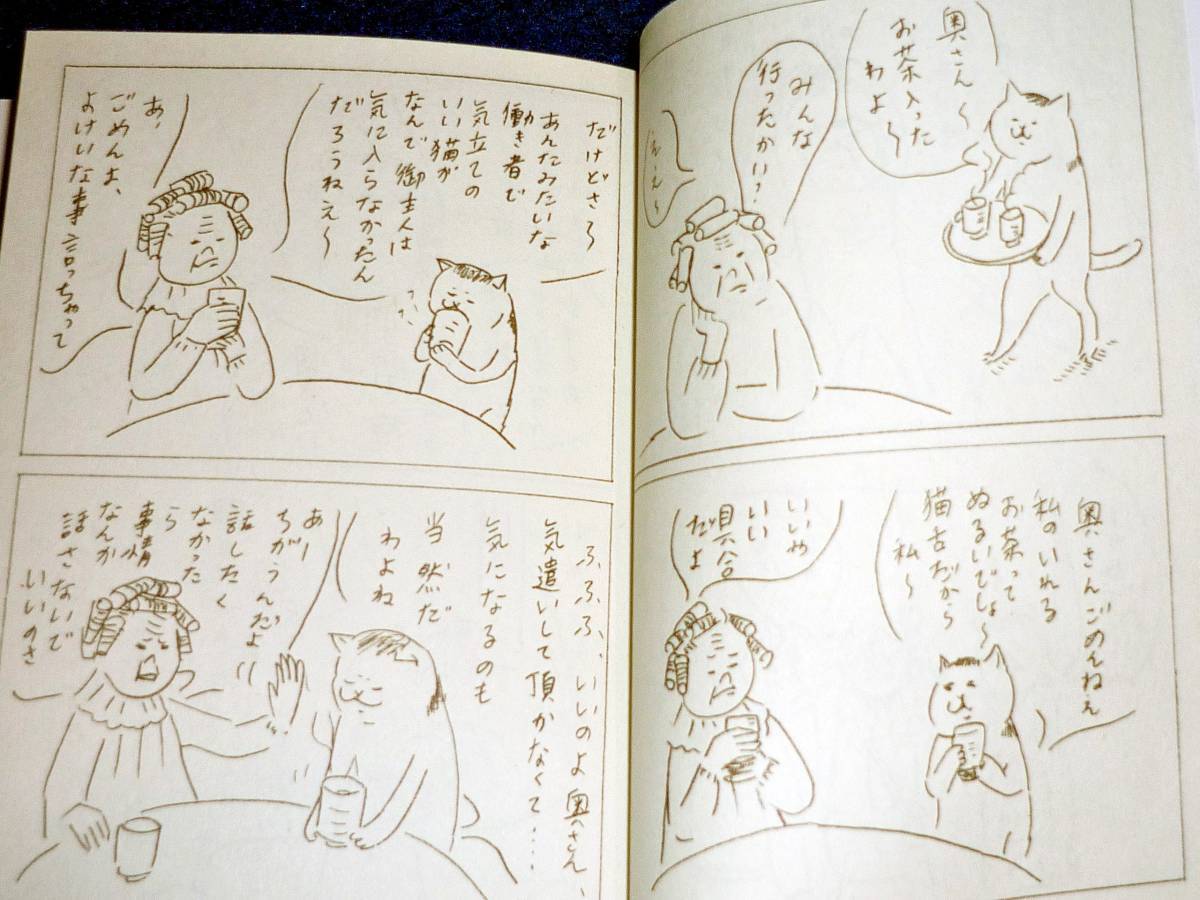 奥さん〜
お茶入った
わよ〜
みんな
行ったかい?
ええ〜
奥さんごめんねぇ
私のいれる
お茶って
ぬるいでしょ〜
猫舌だから
私〜
いいや
いい
具合
だよ
だけどさ〜
あんたみたいな
働き者で
気立ての
いい猫が
なんで御主人は
気に入らなかったん
だろうねえ〜
あ、
ごめんよ、
よけいな事言っちゃって
ふふふ、いいのよ奥さん、
気遣いして頂かなくて‥‥
気になるのも
当然だ
わよね
あー
ちがうんだよ
話したく
なかった
ら
事情
なんか
話さないで
いいのさ